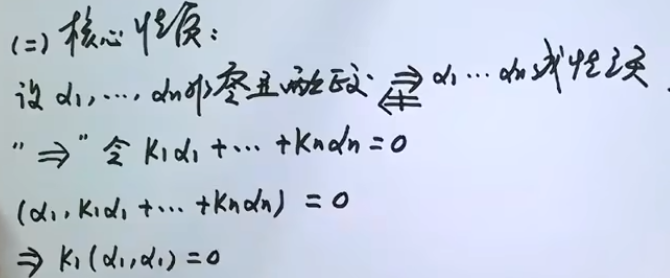 (二) 核心性质:
设 α₁, …, αₙ 非零且两两正交 ⇒ ⇍ α₁ … αₙ 线性无关
"⇒" 令 k₁α₁ + … + kₙαₙ = 0
(α₁, k₁α₁ + … + kₙαₙ) = 0
⇒ k₁(α₁, α₁) = 0